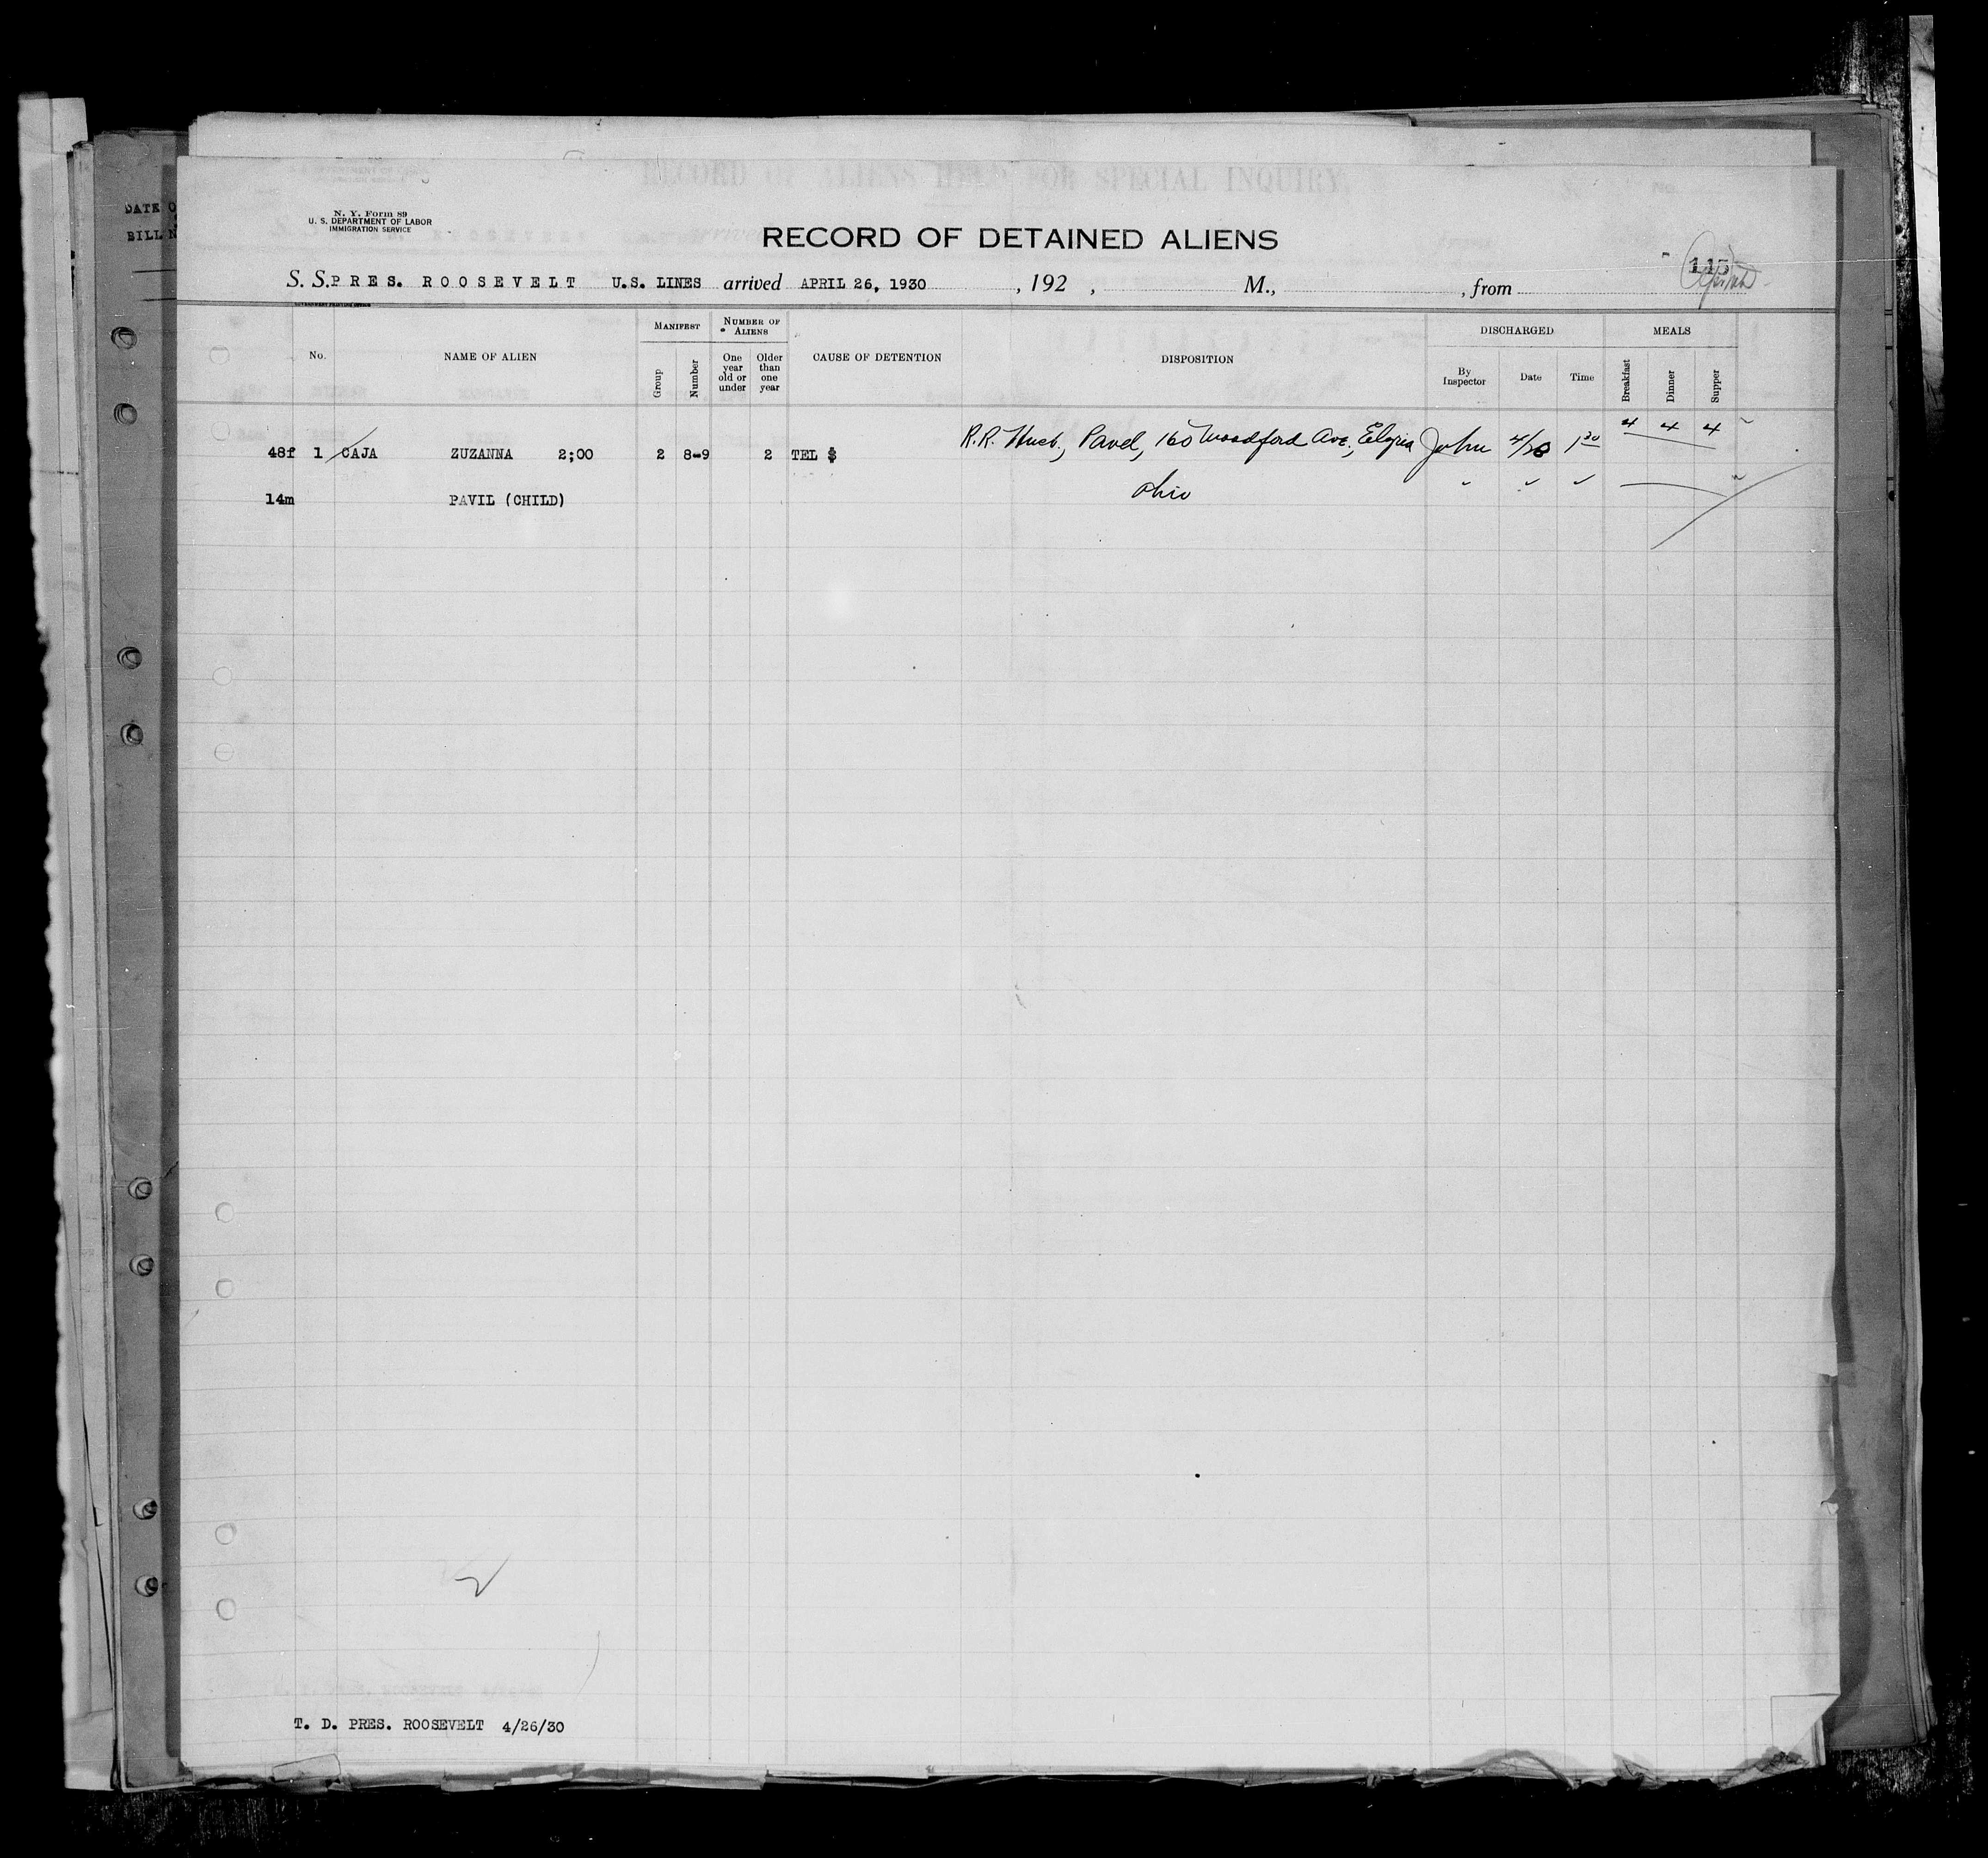 DATE O
BILL N
RECORD OF ALIENS HELD FOR SPECIAL INQUIRY
N. Y. Form 89
U. S. DEPARTMENT OF LABOR
IMMIGRATION SERVICE
RECORD OF DETAINED ALIENS
115
S. S. PRES. ROOSEVELT U.S. LINES arrived APRIL 26, 1930 , 192 , M., , from
GOVERNMENT PRINTING OFFICE
No. NAME OF ALIEN MANIFEST Group Number NUMBER OF ALIENS One year old or under Older than one year CAUSE OF DETENTION DISPOSITION DISCHARGED By Inspector Date Time MEALS Breakfast Dinner Supper
48f 1 CAJA ZUZANNA 2;00 2 8-9 2 TEL $ R.R. Husb, Pavel, 160 Woodford Ave, Elyria John 4/28 1 30 4 4 4
14m PAVIL (CHILD) Ohio
T. D. PRES. ROOSEVELT 4/26/30